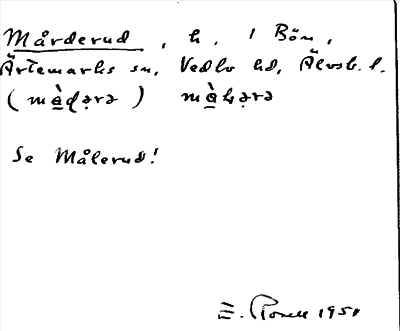 Mårderud, h. i Bön,
Ärtemarks sn, Vedbo hd, Älvsb. l.
(màḍərə) màhərə
Se Målerud!
E. Rosell 1951